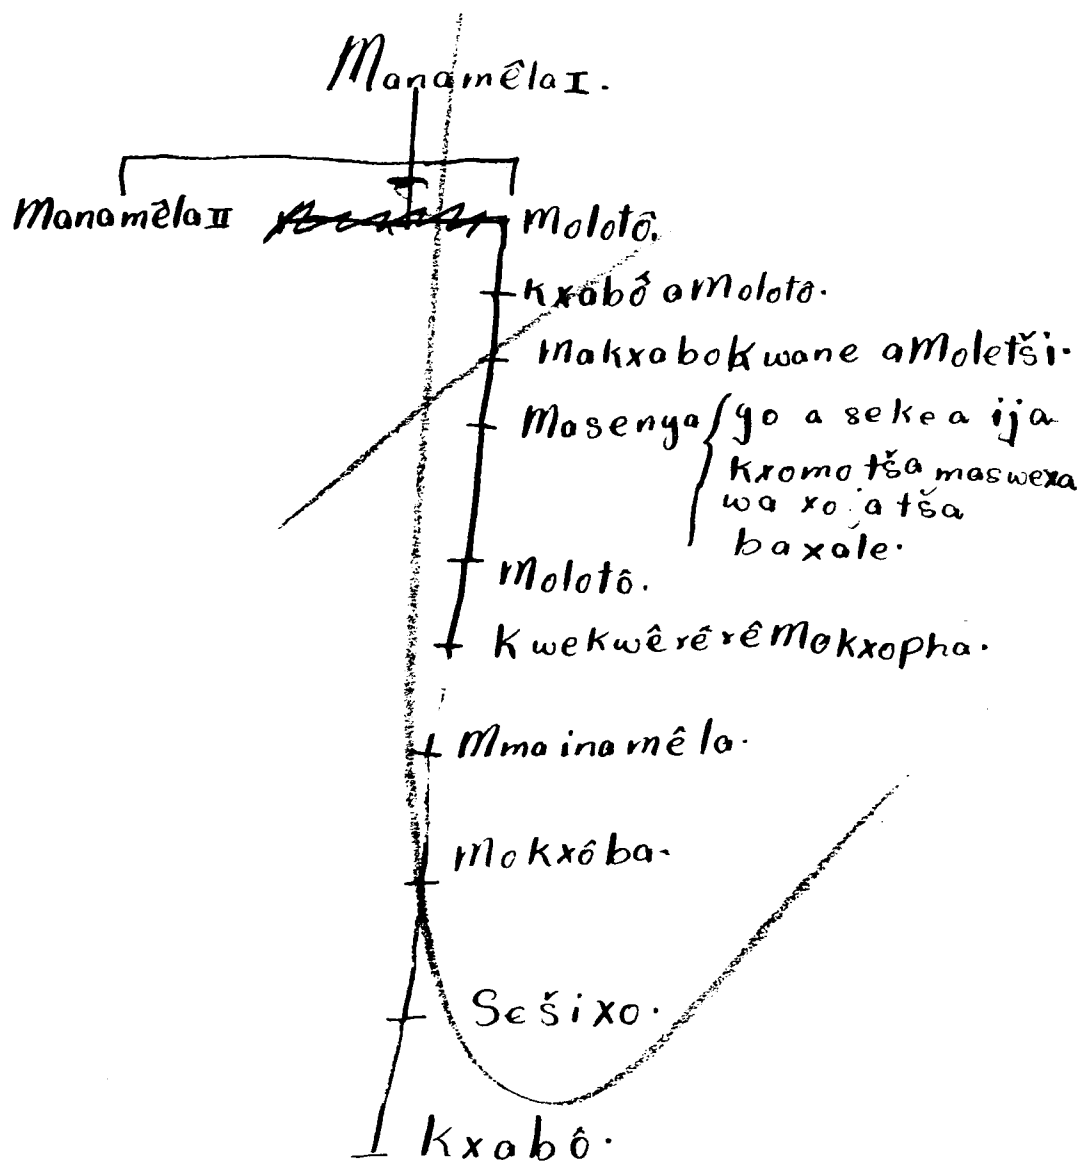 Manamêla I.
Manamêla II Molotô.
Kxabô a Molotô.
Makxabokwane a Moletši.
Masenya { go a seke a ija
kxomo tša maswexa
wa xo ja tša
baxale.
Molotô.
Kwekwêrêrê Mokxopha.
Mmainamêla.
Mokxôba.
Sešixo.
Kxabô.